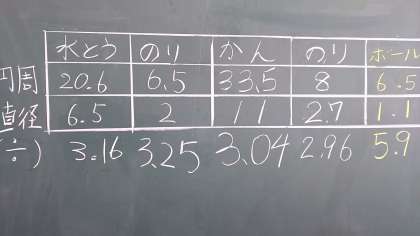 水とう のり かん のり ボール
円周 20.6 6.5 33.5 8 6.5
直径 6.5 2 11 2.7 1.1
(÷) 3.16 3.25 3.04 2.96 5.9